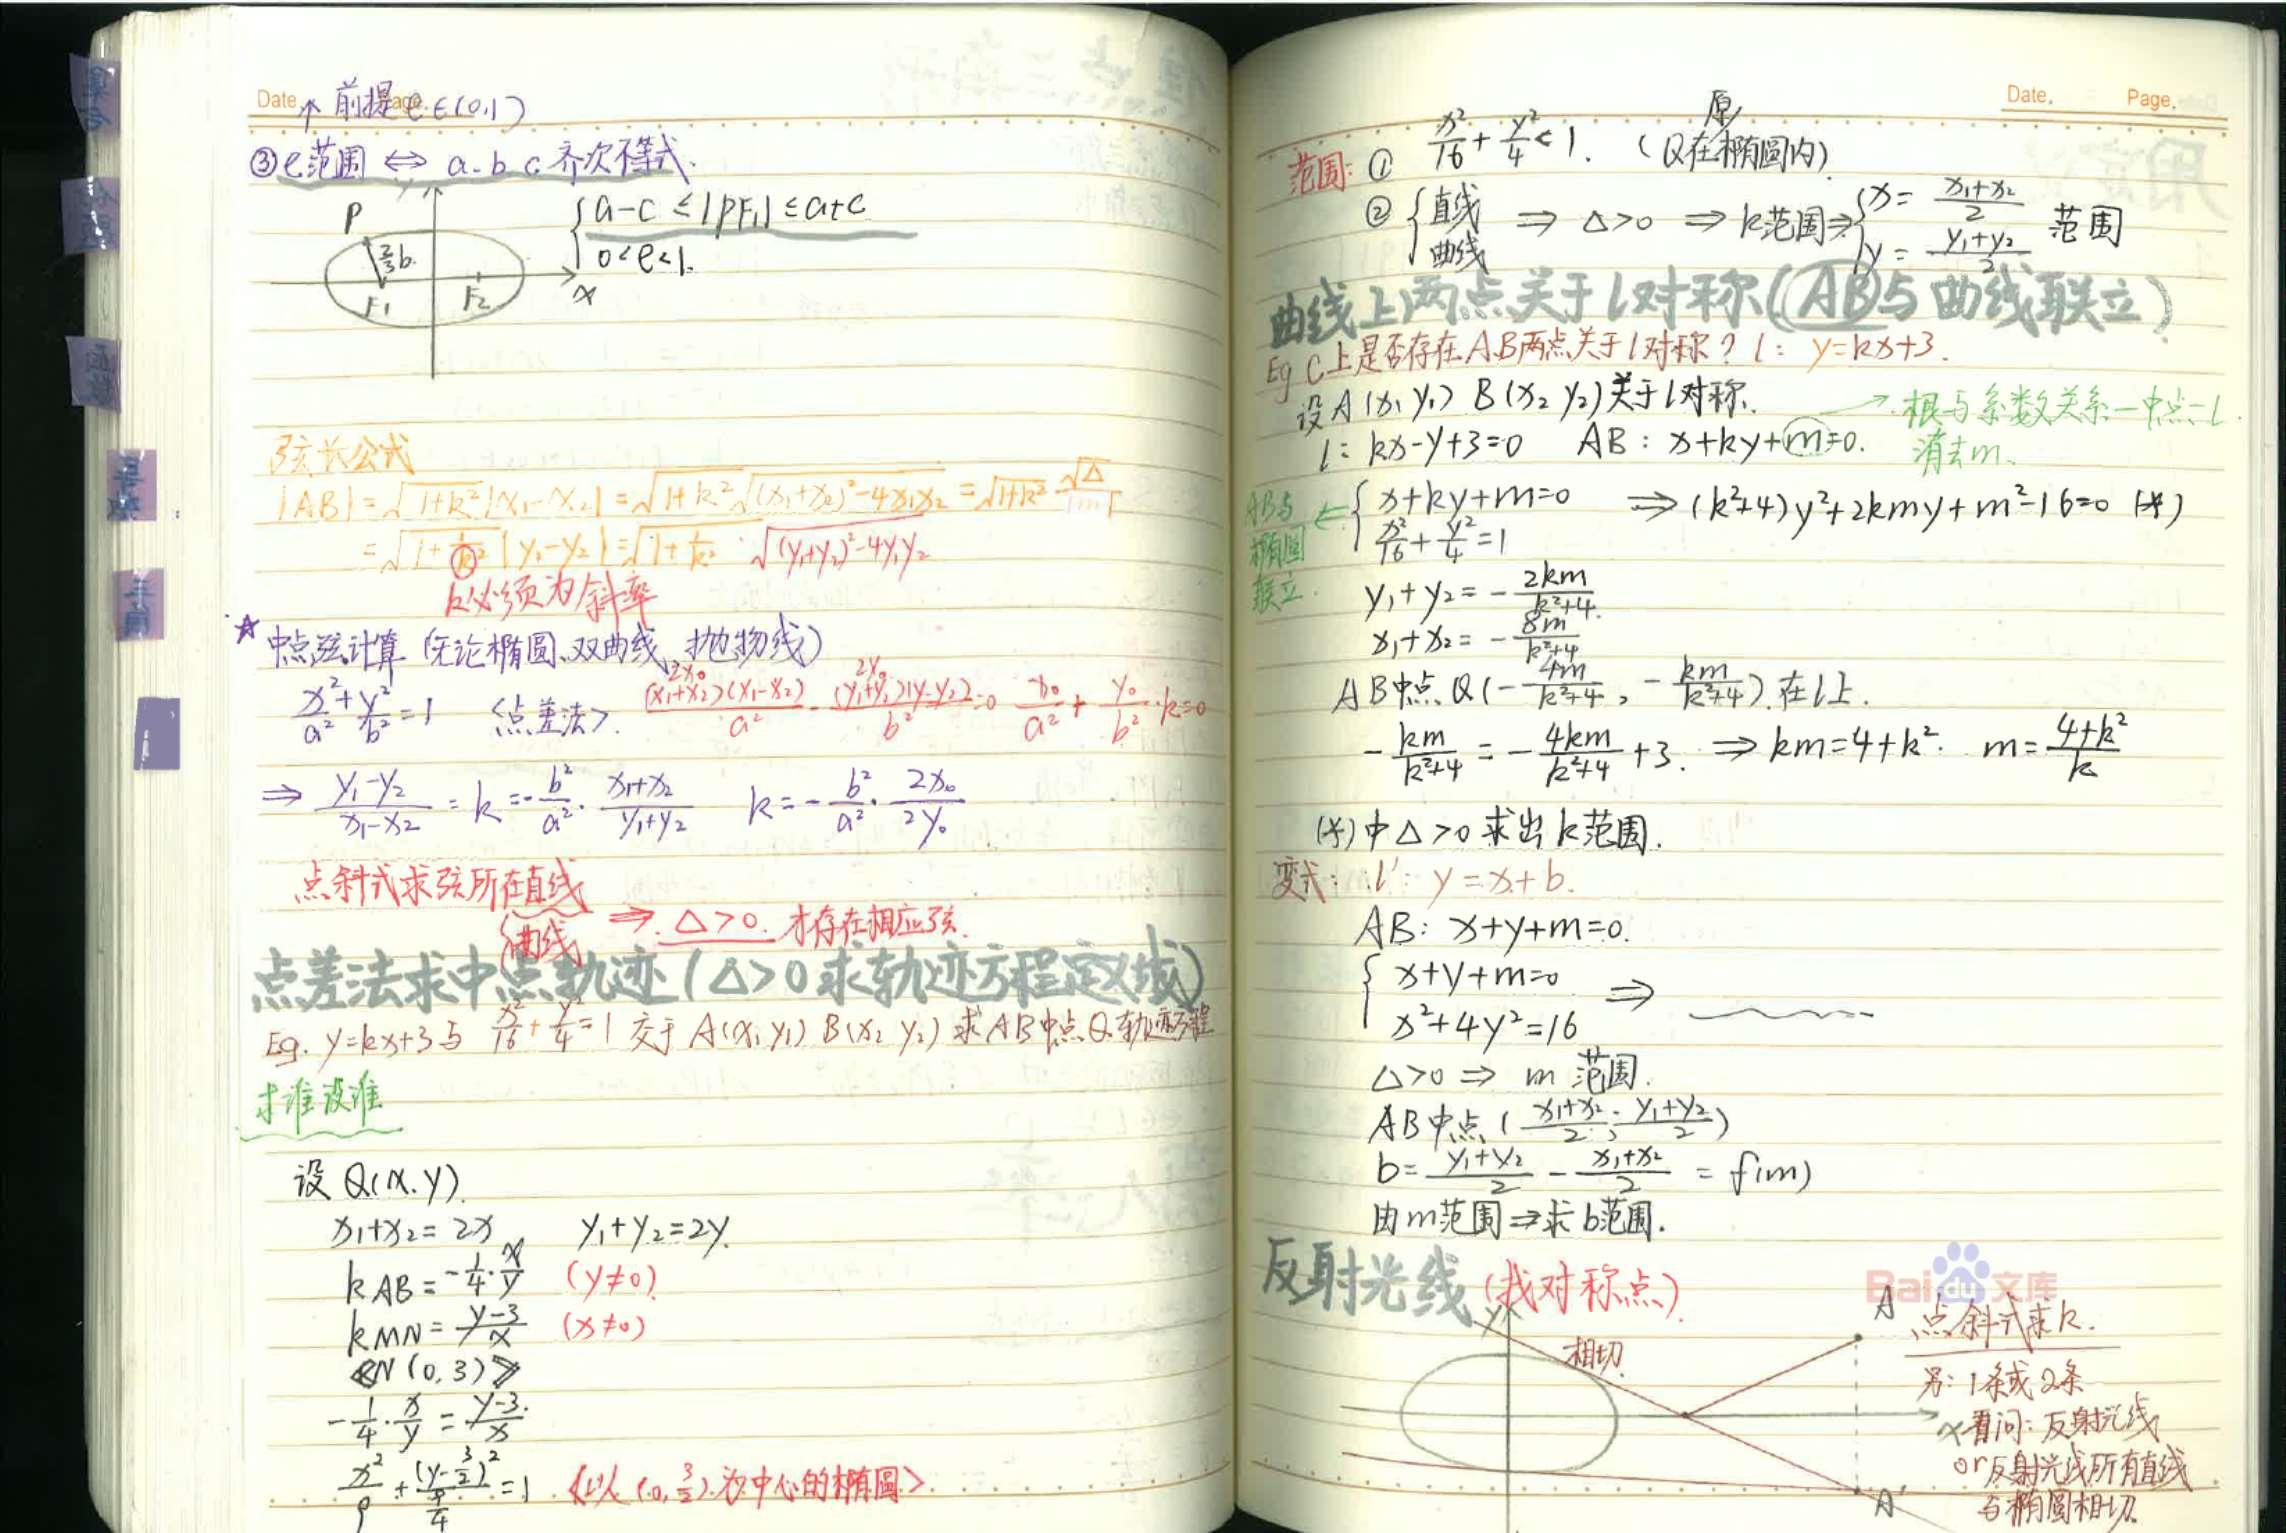 Date.
↑ 前提 e∈(0,1)
③ e范围 ⇔ a.b c 齐次不等式.
y
P
{ a-c ≤ |PF₁| ≤ a+c
0<e<1.
b
F₁ F₂ x
弦长公式
|AB| = √(1+k²) |x₁-x₂| = √(1+k²) √((x₁+x₂)²-4x₁x₂) = √(1+k²) √Δ/|m|
= √(1+1/k²) |y₁-y₂| = √(1+1/k²) · √((y₁+y₂)²-4y₁y₂)
k必须为斜率
☆ 中点弦计算 (无论椭圆、双曲线、抛物线)
2x₀ 2y₀
x²/a² + y²/b² = 1 <点差法>. (x₁+x₂)(x₁-x₂)/a² - (y₁+y₂)(y₁-y₂)/b² = 0 x₀/a² + y₀/b² · k = 0
⇒ (y₁-y₂)/(x₁-x₂) = k = -b²/a² · (x₁+x₂)/(y₁+y₂) k = -b²/a² · 2x₀/2y₀
点斜式求弦所在直线
{曲线 ⇒ Δ>0. 才存在相应弦.
点差法求中点轨迹 (Δ>0求轨迹方程定义域)
Eg. y=kx+3与 x²/16 + y²/4 = 1 交于 A(x₁ y₁) B(x₂ y₂) 求AB中点Q轨迹方程
求谁设谁
设 Q(x.y).
x₁+x₂=2x y₁+y₂=2y.
kAB = -1/4 · x/y (y≠0)
kMN = (y-3)/x (x≠0)
《N(0,3)》
-1/4 · x/y = (y-3)/x
x²/9 + (y-3/2)²/(9/4) = 1 《以(0,3/2)为中心的椭圆》
Date. Page.
原
范围: ① x²/16 + y²/4 < 1. (Q在椭圆内).
② { 直线 曲线 ⇒ Δ>0 ⇒ k范围 ⇒ { x = (x₁+x₂)/2 y = (y₁+y₂)/2 范围
曲线上两点关于l对称(AB与曲线联立)
Eg C上是否存在A.B两点关于l对称? l: y=kx+3.
设A(x₁ y₁) B(x₂ y₂)关于l对称.
→ 根与系数关系—中点—l
l: kx-y+3=0 AB: x+ky+m=0.
消去m.
AB与椭圆联立. ← { x+ky+m=0 x²/16 + y²/4 = 1 ⇒ (k²+4)y²+2kmy+m²-16=0 (*)
y₁+y₂ = -2km/(k²+4)
x₁+x₂ = -8m/(k²+4)
AB中点Q(-4m/(k²+4), -km/(k²+4))在l上.
-km/(k²+4) = -4km/(k²+4) + 3. ⇒ km=4+k². m=(4+k²)/k
(*)中Δ>0求出k范围.
变式: l': y=x+b.
AB: x+y+m=0.
{ x+y+m=0 x²+4y²=16 ⇒
Δ>0 ⇒ m 范围.
AB中点((x₁+x₂)/2, (y₁+y₂)/2)
b = (y₁+y₂)/2 - (x₁+x₂)/2 = f(m)
由m范围⇒求b范围.
反射光线 (找对称点)
Baidu文库
y
相切
A
点斜式求k.
另: 1条或2条
x
看问: 反射光线
or反射光线所有直线
与椭圆相切.
A'